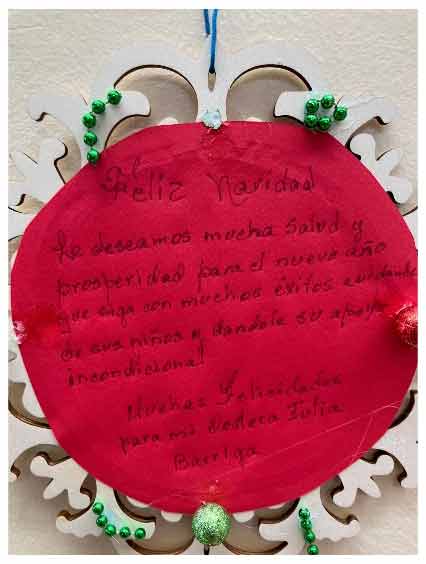 Feliz Navidad
Le deseamos mucha Salud y
prosperidad para el nuevo año
que siga con muchos éxitos cuidando
de sus niños y dandole su apoyo
incondicional
Muchas Felicidades
para mi Doctora Julia
Barriga